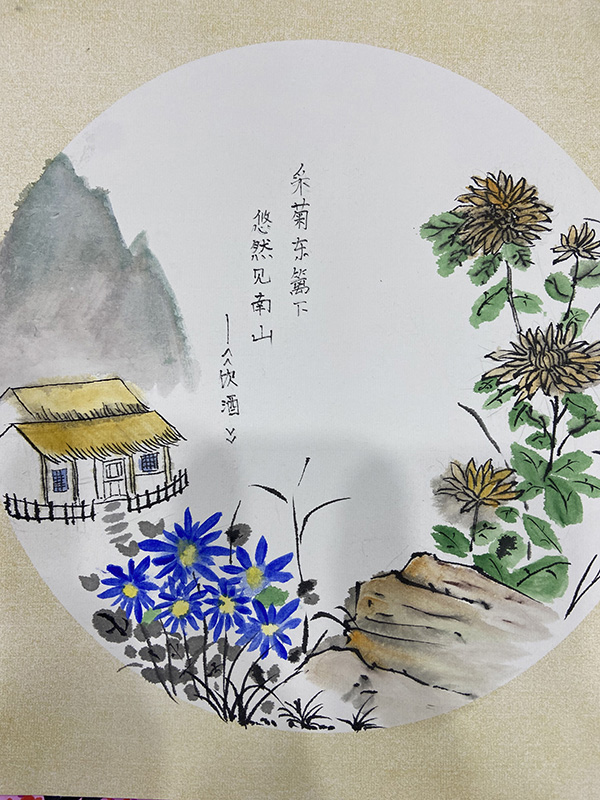 采菊东篱下
悠然见南山
—《饮酒》